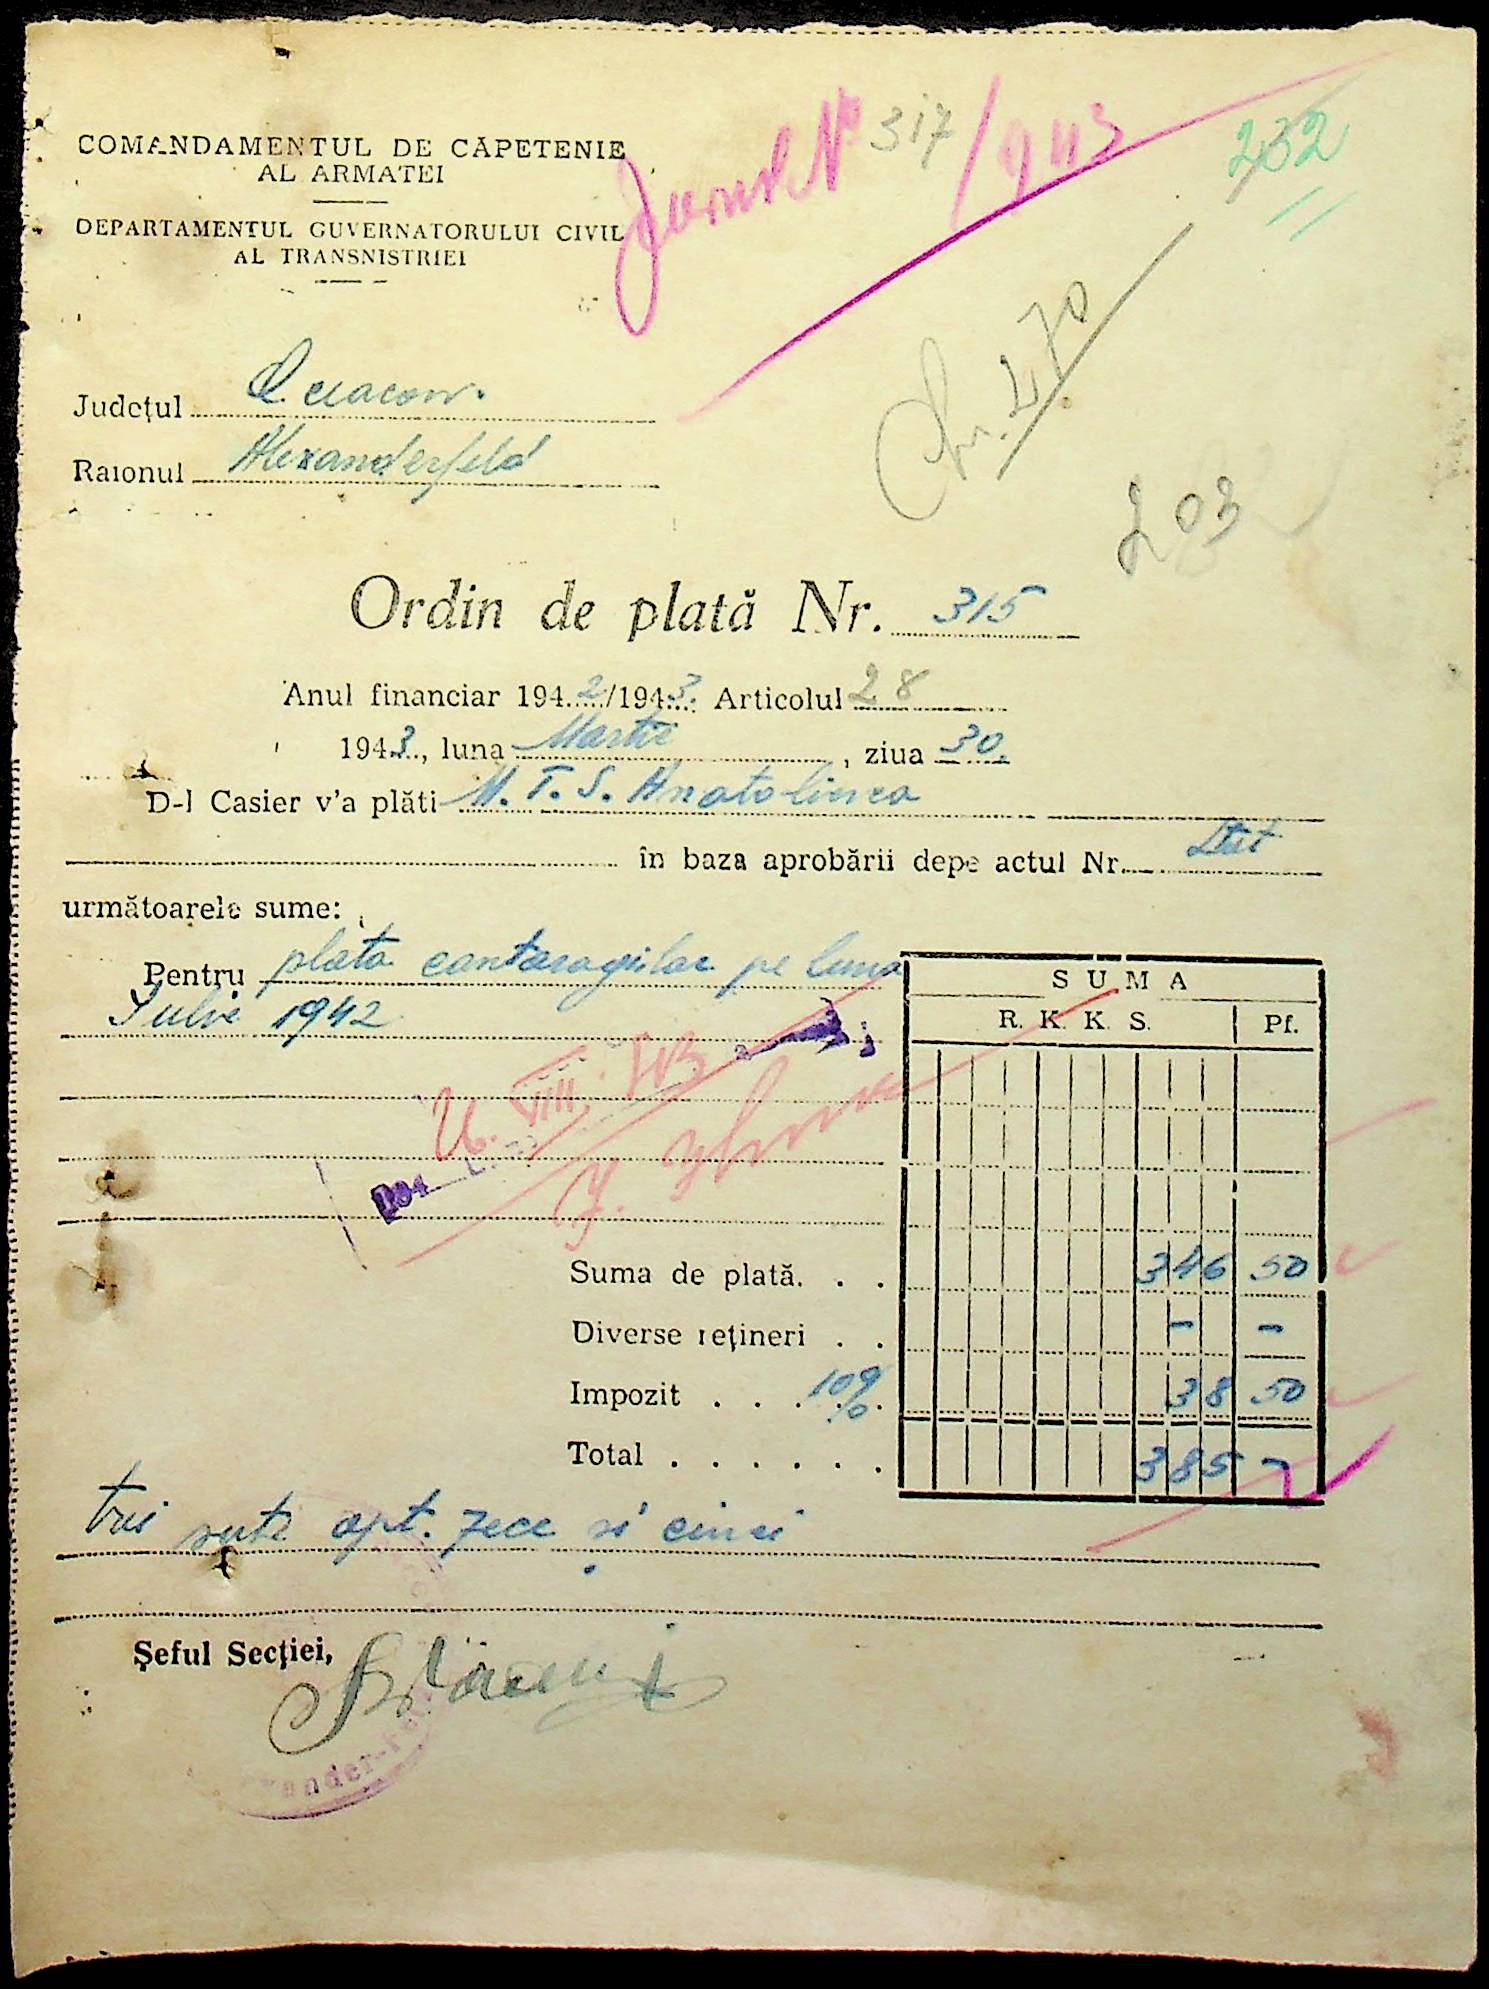 COMANDAMENTUL DE CĂPETENIE
AL ARMATEI
DEPARTAMENTUL GUVERNATORULUI CIVIL
AL TRANSNISTRIEI
Jurnal No 317/943
232
270
203
Județul
Raionul Alexanderfeld
Ordin de plată Nr. 315
Anul financiar 1942/1943. Articolul 28
1943., luna Martie, ziua 30.
D-l Casier v'a plăti M. T. S.
în baza aprobării depe actul Nr. Stat
următoarele sume:
Pentru plata cantaragiilor pe luna
Iulie 1942
SUMA
R. K. K. S. Pf.
Suma de plată. . . 346 50
Diverse rețineri . . - -
Impozit . . . 10% 38 50
Total . . . . . . 385 -
trei sute opt. zece și cinci
Șeful Secției,